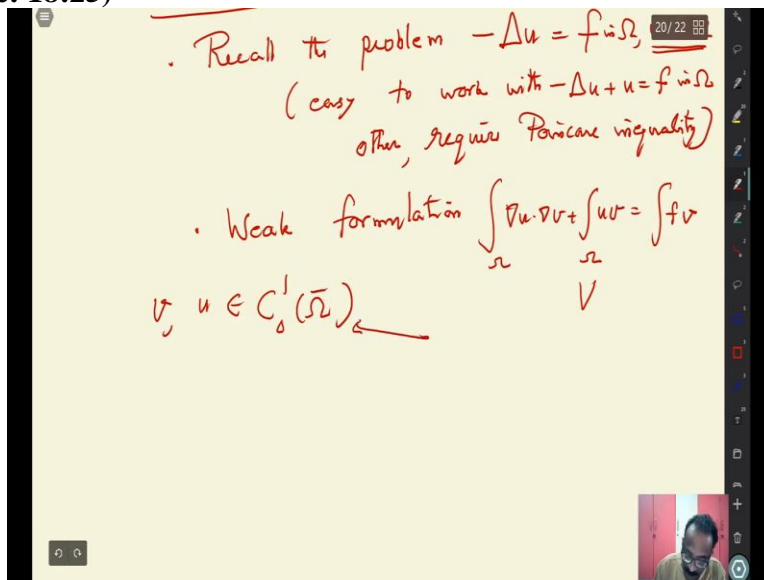 · Recall th problem −Δu = f in Ω,
20/22
(easy to work with −Δu + u = f in Ω
other, require Poincare inequality)
· Weak formulation ∫_Ω ∇u·∇v + ∫_Ω uv = ∫ f v
v, u ∈ C₀¹(Ω̄)
V